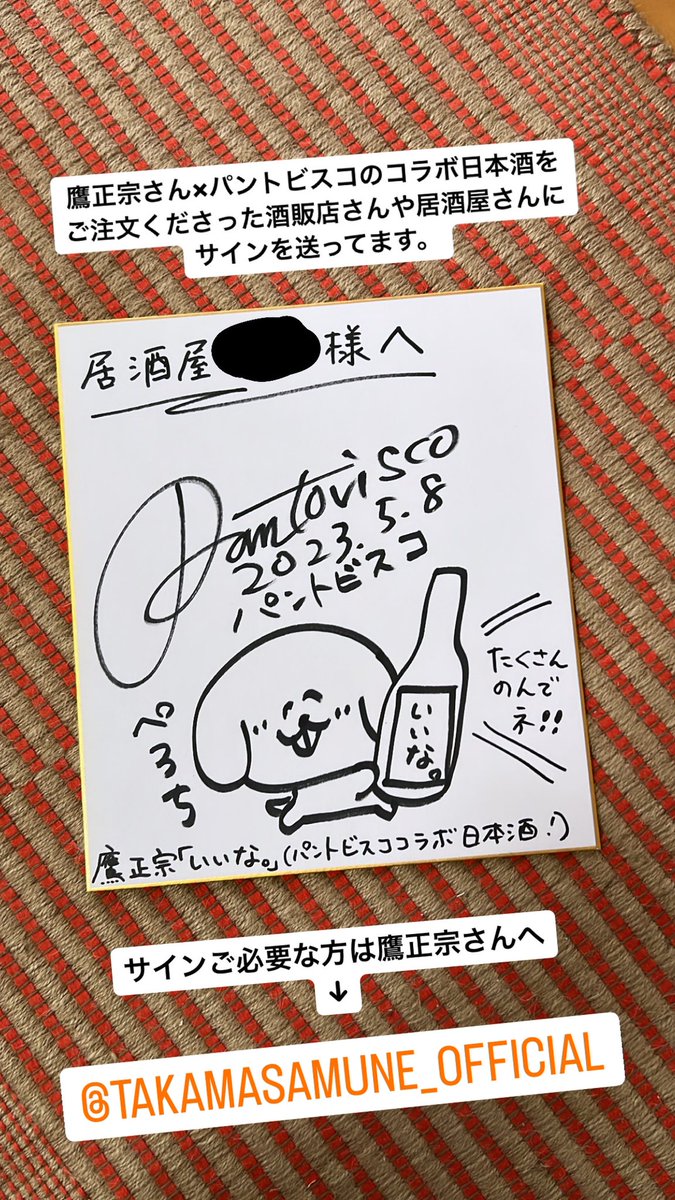 鷹正宗さん×パントビスコのコラボ日本酒を
ご注文くださった酒販店さんや居酒屋さんに
サインを送ってます。
居酒屋
様へ
Pantovisco
2023.5.8
パントビスコ
たくさん
のんで
ネ!!
いいな。
ぺろち
鷹正宗「いいな。」(パントビスココラボ日本酒!)
サインご必要な方は鷹正宗さんへ
↓
@TAKAMASAMUNE_OFFICIAL